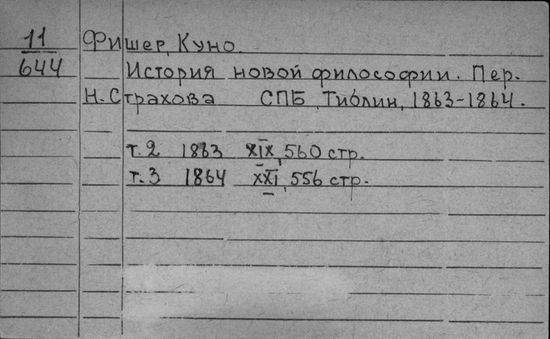 11 Фишер, Куно.
644 История новой философии. Пер.
Н. Страхова СПБ, Тиблин, 1863-1864.
т.2 1863 XIX, 560 стр.
т.3 1864 XXI, 556 стр.